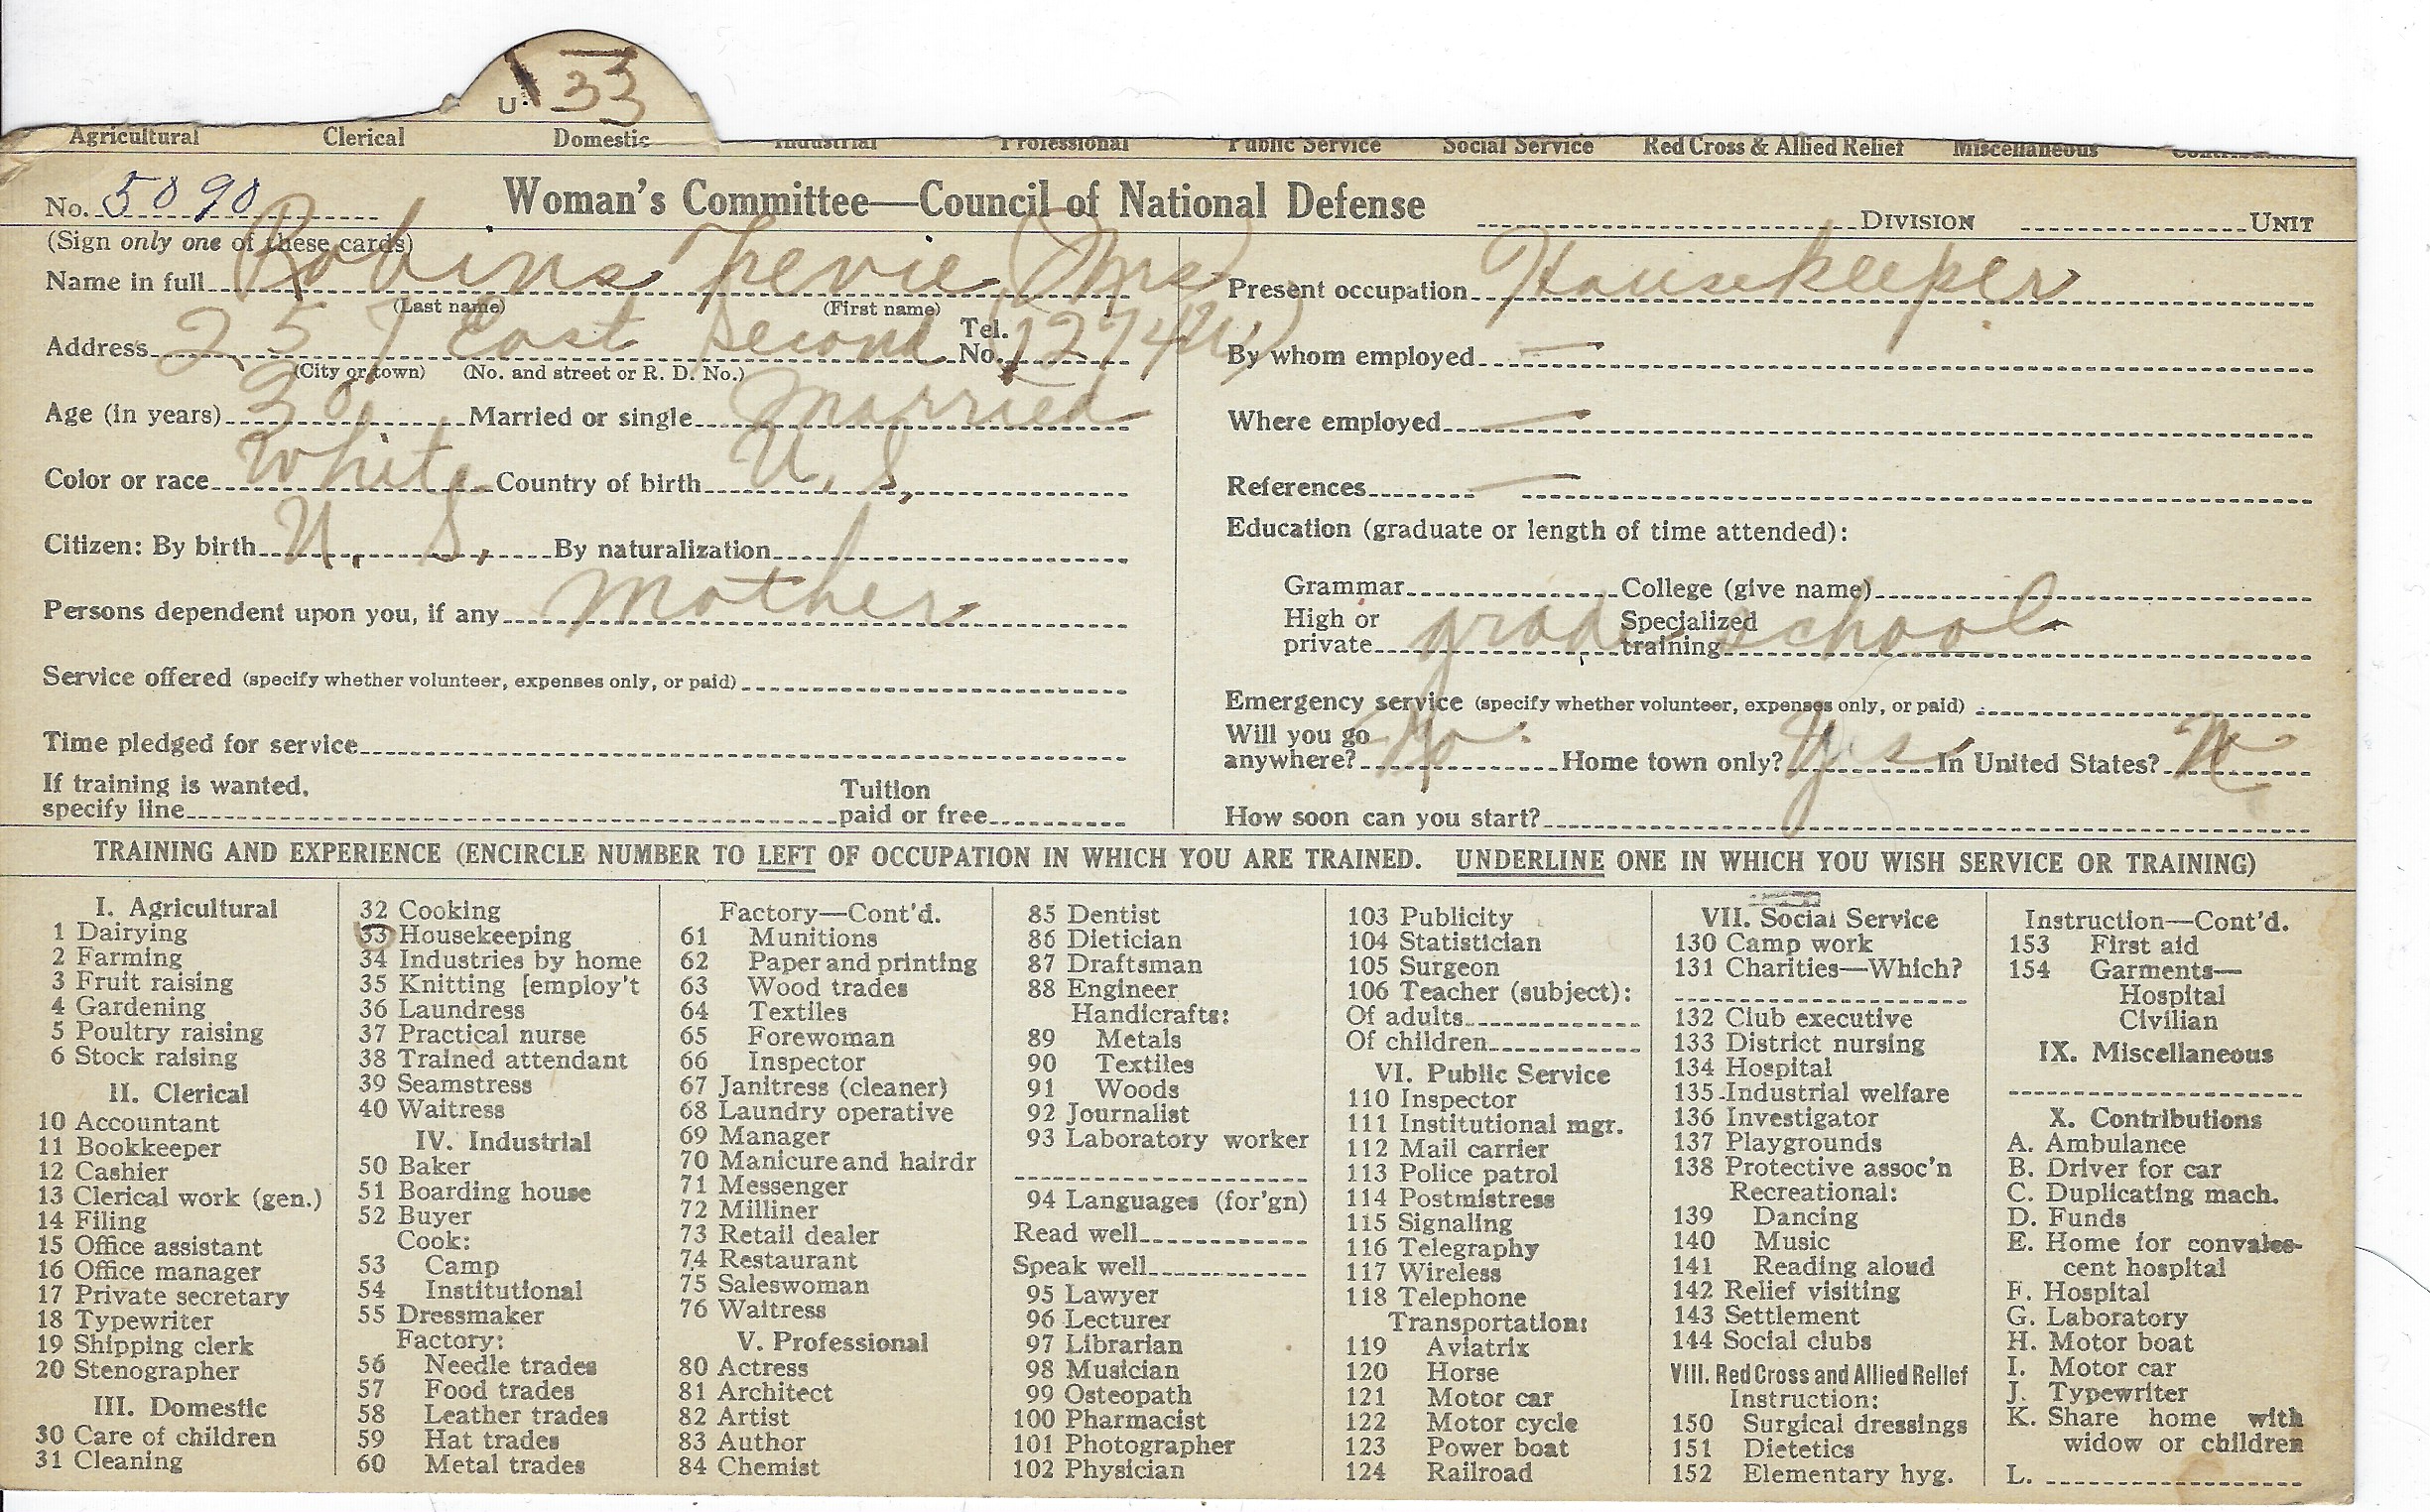 U. 33
Agricultural Clerical Domestic Industrial Professional Public Service Social Service Red Cross & Allied Relief Miscellaneous
No. 5090 Woman's Committee—Council of National Defense DIVISION UNIT
(Sign only one of these cards)
Name in full Robins Trevie (Mrs)
(Last name) (First name)
Address 257 East Second Tel. No. (1274W)
(City or town) (No. and street or R. D. No.)
Age (in years) 30 Married or single Married
Color or race White Country of birth U. S.
Citizen: By birth U. S. By naturalization
Persons dependent upon you, if any Mother
Service offered (specify whether volunteer, expenses only, or paid)
Time pledged for service
If training is wanted, specify line Tuition paid or free
Present occupation Housekeeper
By whom employed —
Where employed —
References —
Education (graduate or length of time attended):
Grammar College (give name)
High or private grade school Specialized training
Emergency service (specify whether volunteer, expenses only, or paid)
Will you go anywhere? No. Home town only? Yes In United States? N
How soon can you start?
TRAINING AND EXPERIENCE (ENCIRCLE NUMBER TO LEFT OF OCCUPATION IN WHICH YOU ARE TRAINED. UNDERLINE ONE IN WHICH YOU WISH SERVICE OR TRAINING)
I. Agricultural
1 Dairying
2 Farming
3 Fruit raising
4 Gardening
5 Poultry raising
6 Stock raising
II. Clerical
10 Accountant
11 Bookkeeper
12 Cashier
13 Clerical work (gen.)
14 Filing
15 Office assistant
16 Office manager
17 Private secretary
18 Typewriter
19 Shipping clerk
20 Stenographer
III. Domestic
30 Care of children
31 Cleaning
32 Cooking
33 Housekeeping
34 Industries by home
35 Knitting [employ't
36 Laundress
37 Practical nurse
38 Trained attendant
39 Seamstress
40 Waitress
IV. Industrial
50 Baker
51 Boarding house
52 Buyer
Cook:
53 Camp
54 Institutional
55 Dressmaker
Factory:
56 Needle trades
57 Food trades
58 Leather trades
59 Hat trades
60 Metal trades
Factory—Cont'd.
61 Munitions
62 Paper and printing
63 Wood trades
64 Textiles
65 Forewoman
66 Inspector
67 Janitress (cleaner)
68 Laundry operative
69 Manager
70 Manicure and hairdr
71 Messenger
72 Milliner
73 Retail dealer
74 Restaurant
75 Saleswoman
76 Waitress
V. Professional
80 Actress
81 Architect
82 Artist
83 Author
84 Chemist
85 Dentist
86 Dietician
87 Draftsman
88 Engineer
Handicrafts:
89 Metals
90 Textiles
91 Woods
92 Journalist
93 Laboratory worker
94 Languages (for'gn)
Read well
Speak well
95 Lawyer
96 Lecturer
97 Librarian
98 Musician
99 Osteopath
100 Pharmacist
101 Photographer
102 Physician
103 Publicity
104 Statistician
105 Surgeon
106 Teacher (subject):
Of adults
Of children
VI. Public Service
110 Inspector
111 Institutional mgr.
112 Mail carrier
113 Police patrol
114 Postmistress
115 Signaling
116 Telegraphy
117 Wireless
118 Telephone
Transportation:
119 Aviatrix
120 Horse
121 Motor car
122 Motor cycle
123 Power boat
124 Railroad
VII. Social Service
130 Camp work
131 Charities—Which?
132 Club executive
133 District nursing
134 Hospital
135 Industrial welfare
136 Investigator
137 Playgrounds
138 Protective assoc'n
Recreational:
139 Dancing
140 Music
141 Reading aloud
142 Relief visiting
143 Settlement
144 Social clubs
VIII. Red Cross and Allied Relief
Instruction:
150 Surgical dressings
151 Dietetics
152 Elementary hyg.
Instruction—Cont'd.
153 First aid
154 Garments—
Hospital
Civilian
IX. Miscellaneous
X. Contributions
A. Ambulance
B. Driver for car
C. Duplicating mach.
D. Funds
E. Home for convales-
cent hospital
F. Hospital
G. Laboratory
H. Motor boat
I. Motor car
J. Typewriter
K. Share home with
widow or children
L.